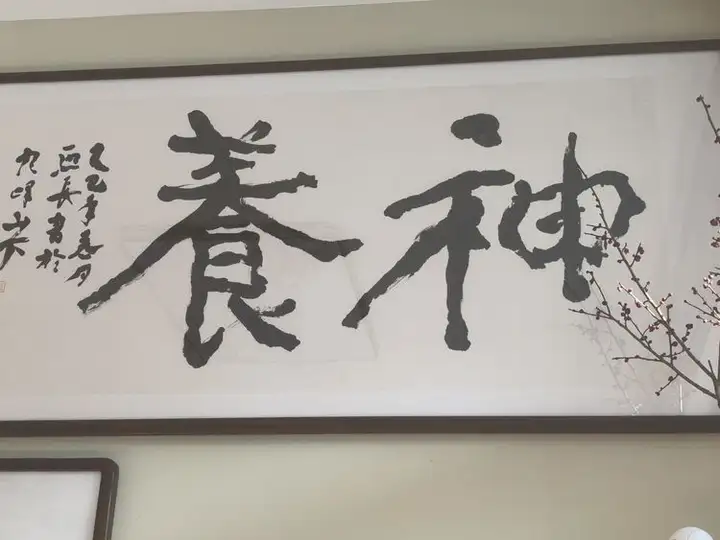 神養
乙巳年春月
長書於
九峰山下